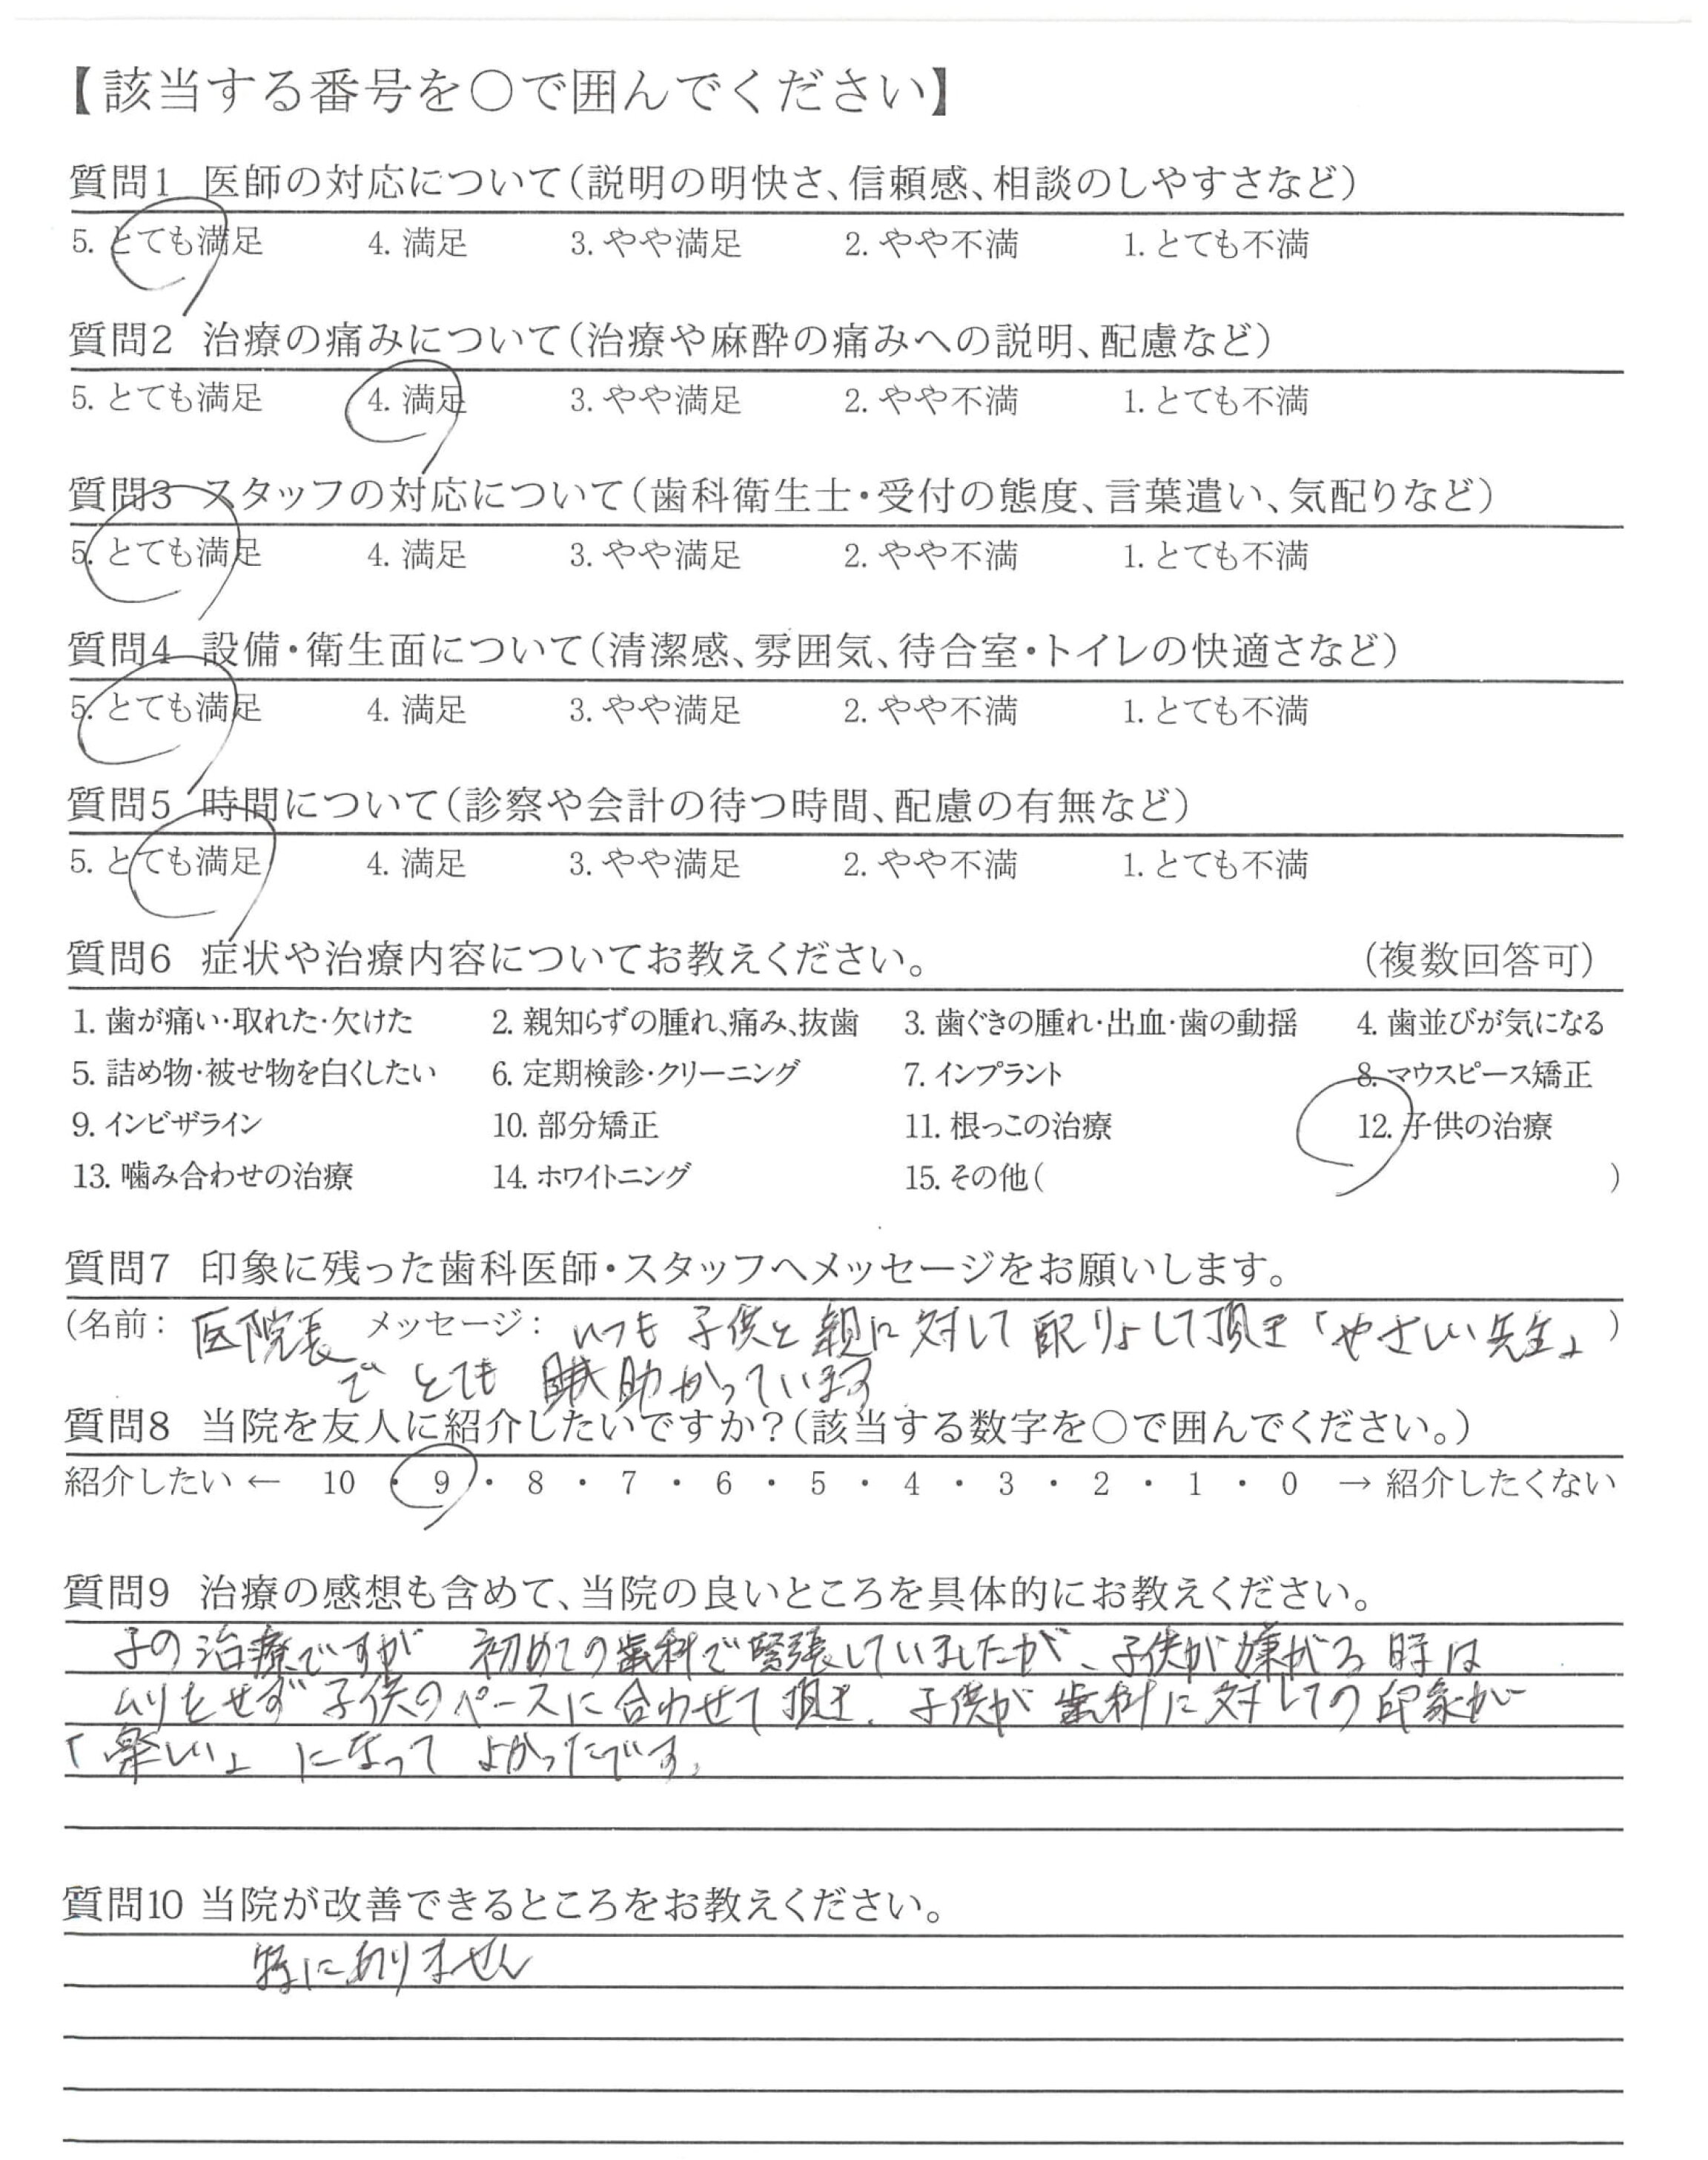 【該当する番号を○で囲んでください】
質問1 医師の対応について(説明の明快さ、信頼感、相談のしやすさなど)
5. とても満足 4. 満足 3. やや満足 2. やや不満 1. とても不満
質問2 治療の痛みについて(治療や麻酔の痛みへの説明、配慮など)
5. とても満足 4. 満足 3. やや満足 2. やや不満 1. とても不満
質問3 スタッフの対応について(歯科衛生士・受付の態度、言葉遣い、気配りなど)
5. とても満足 4. 満足 3. やや満足 2. やや不満 1. とても不満
質問4 設備・衛生面について(清潔感、雰囲気、待合室・トイレの快適さなど)
5. とても満足 4. 満足 3. やや満足 2. やや不満 1. とても不満
質問5 時間について(診察や会計の待つ時間、配慮の有無など)
5. とても満足 4. 満足 3. やや満足 2. やや不満 1. とても不満
質問6 症状や治療内容についてお教えください。 (複数回答可)
1. 歯が痛い・取れた・欠けた 2. 親知らずの腫れ、痛み、抜歯 3. 歯ぐきの腫れ・出血・歯の動揺 4. 歯並びが気になる
5. 詰め物・被せ物を白くしたい 6. 定期検診・クリーニング 7. インプラント 8. マウスピース矯正
9. インビザライン 10. 部分矯正 11. 根っこの治療 12. 子供の治療
13. 噛み合わせの治療 14. ホワイトニング 15. その他( )
質問7 印象に残った歯科医師・スタッフへメッセージをお願いします。
(名前: 医院長 メッセージ: いつも 子供と 親に 対して 配りょして頂き 「やさしい先生」 )
で とても 助かっています
質問8 当院を友人に紹介したいですか?(該当する数字を○で囲んでください。)
紹介したい ← 10 ・ 9 ・ 8 ・ 7 ・ 6 ・ 5 ・ 4 ・ 3 ・ 2 ・ 1 ・ 0 → 紹介したくない
質問9 治療の感想も含めて、当院の良いところを具体的にお教えください。
子の治療ですが 初めての歯科で緊張していましたが、子供が嫌がる時は
ムリをせず 子供のペースに合わせて頂き、子供が歯科に対しての印象が
「楽しい」 になって よかったです。
質問10 当院が改善できるところをお教えください。
特にありません